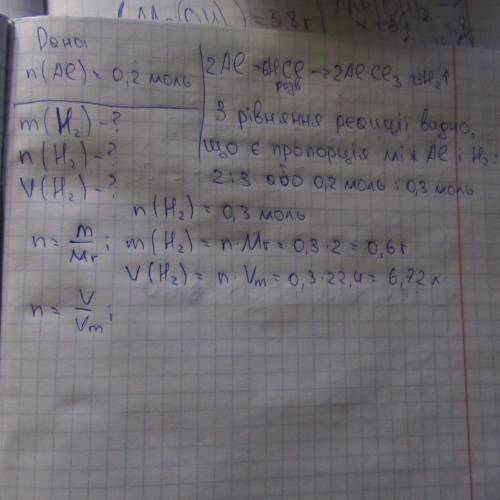 (Mg(OH)₂) = 5,8 г
Дано:
n(Al) = 0,2 моль
2Al + 6HCl → 2AlCl₃ + H₂↑
розв.
m(H₂) - ?
n(H₂) - ?
V(H₂) - ?
З рівняння реакції видно,
що є пропорція між Al і H₂
2 : 3 або 0,2 моль : 0,3 моль
n(H₂) = 0,3 моль
n = m/Mr; m(H₂) = n·Mr = 0,3·2 = 0,6 г
V(H₂) = n·Vm = 0,3·22,4 = 6,72 л
n = V/Vm;